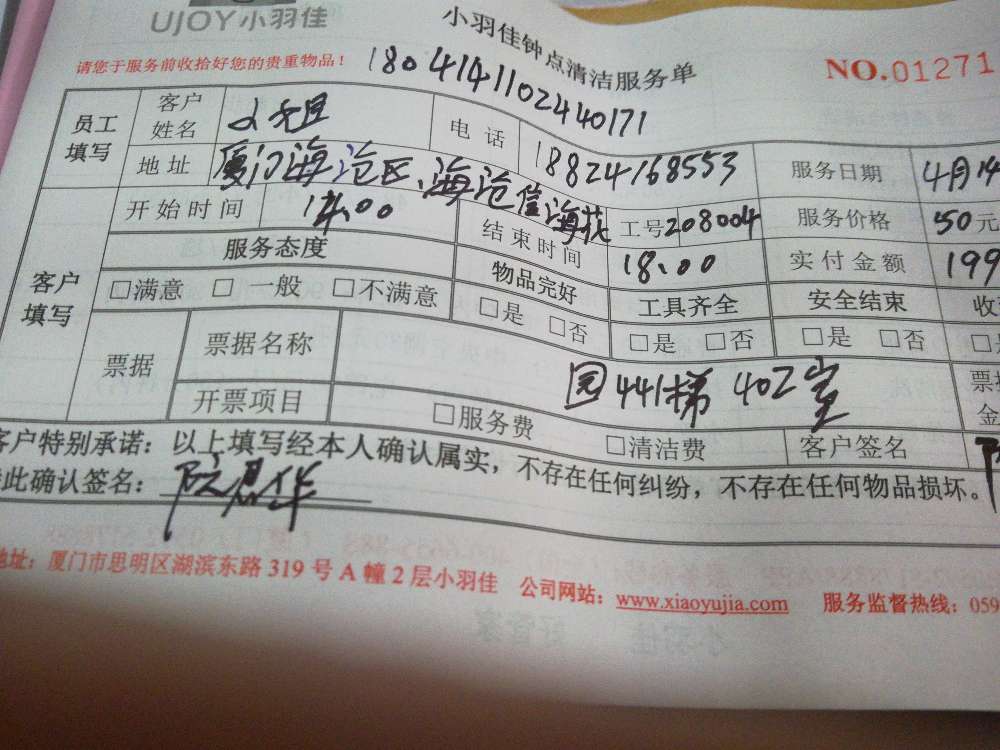 UJOY小羽佳
小羽佳钟点清洁服务单
NO.01271
请您于服务前收拾好您的贵重物品！
180414110244017１
员工填写 客户姓名 电话 18824168553 服务日期 4月14
地址 厦门海沧区、海沧信海花 工号 208004 服务价格 50元
客户填写 开始时间 14:00 结束时间 18:00 实付金额 199
服务态度 物品完好 工具齐全 安全结束
□满意 □一般 □不满意 □是 □否 □是 □否 □是 □否
票据 票据名称 园441梯402室
开票项目 □服务费 □清洁费 客户签名
客户特别承诺：以上填写经本人确认属实，不存在任何纠纷，不存在任何物品损坏。
此确认签名：
地址：厦门市思明区湖滨东路 319 号 A 幢 2 层小羽佳 公司网站：www.xiaoyujia.com 服务监督热线：059